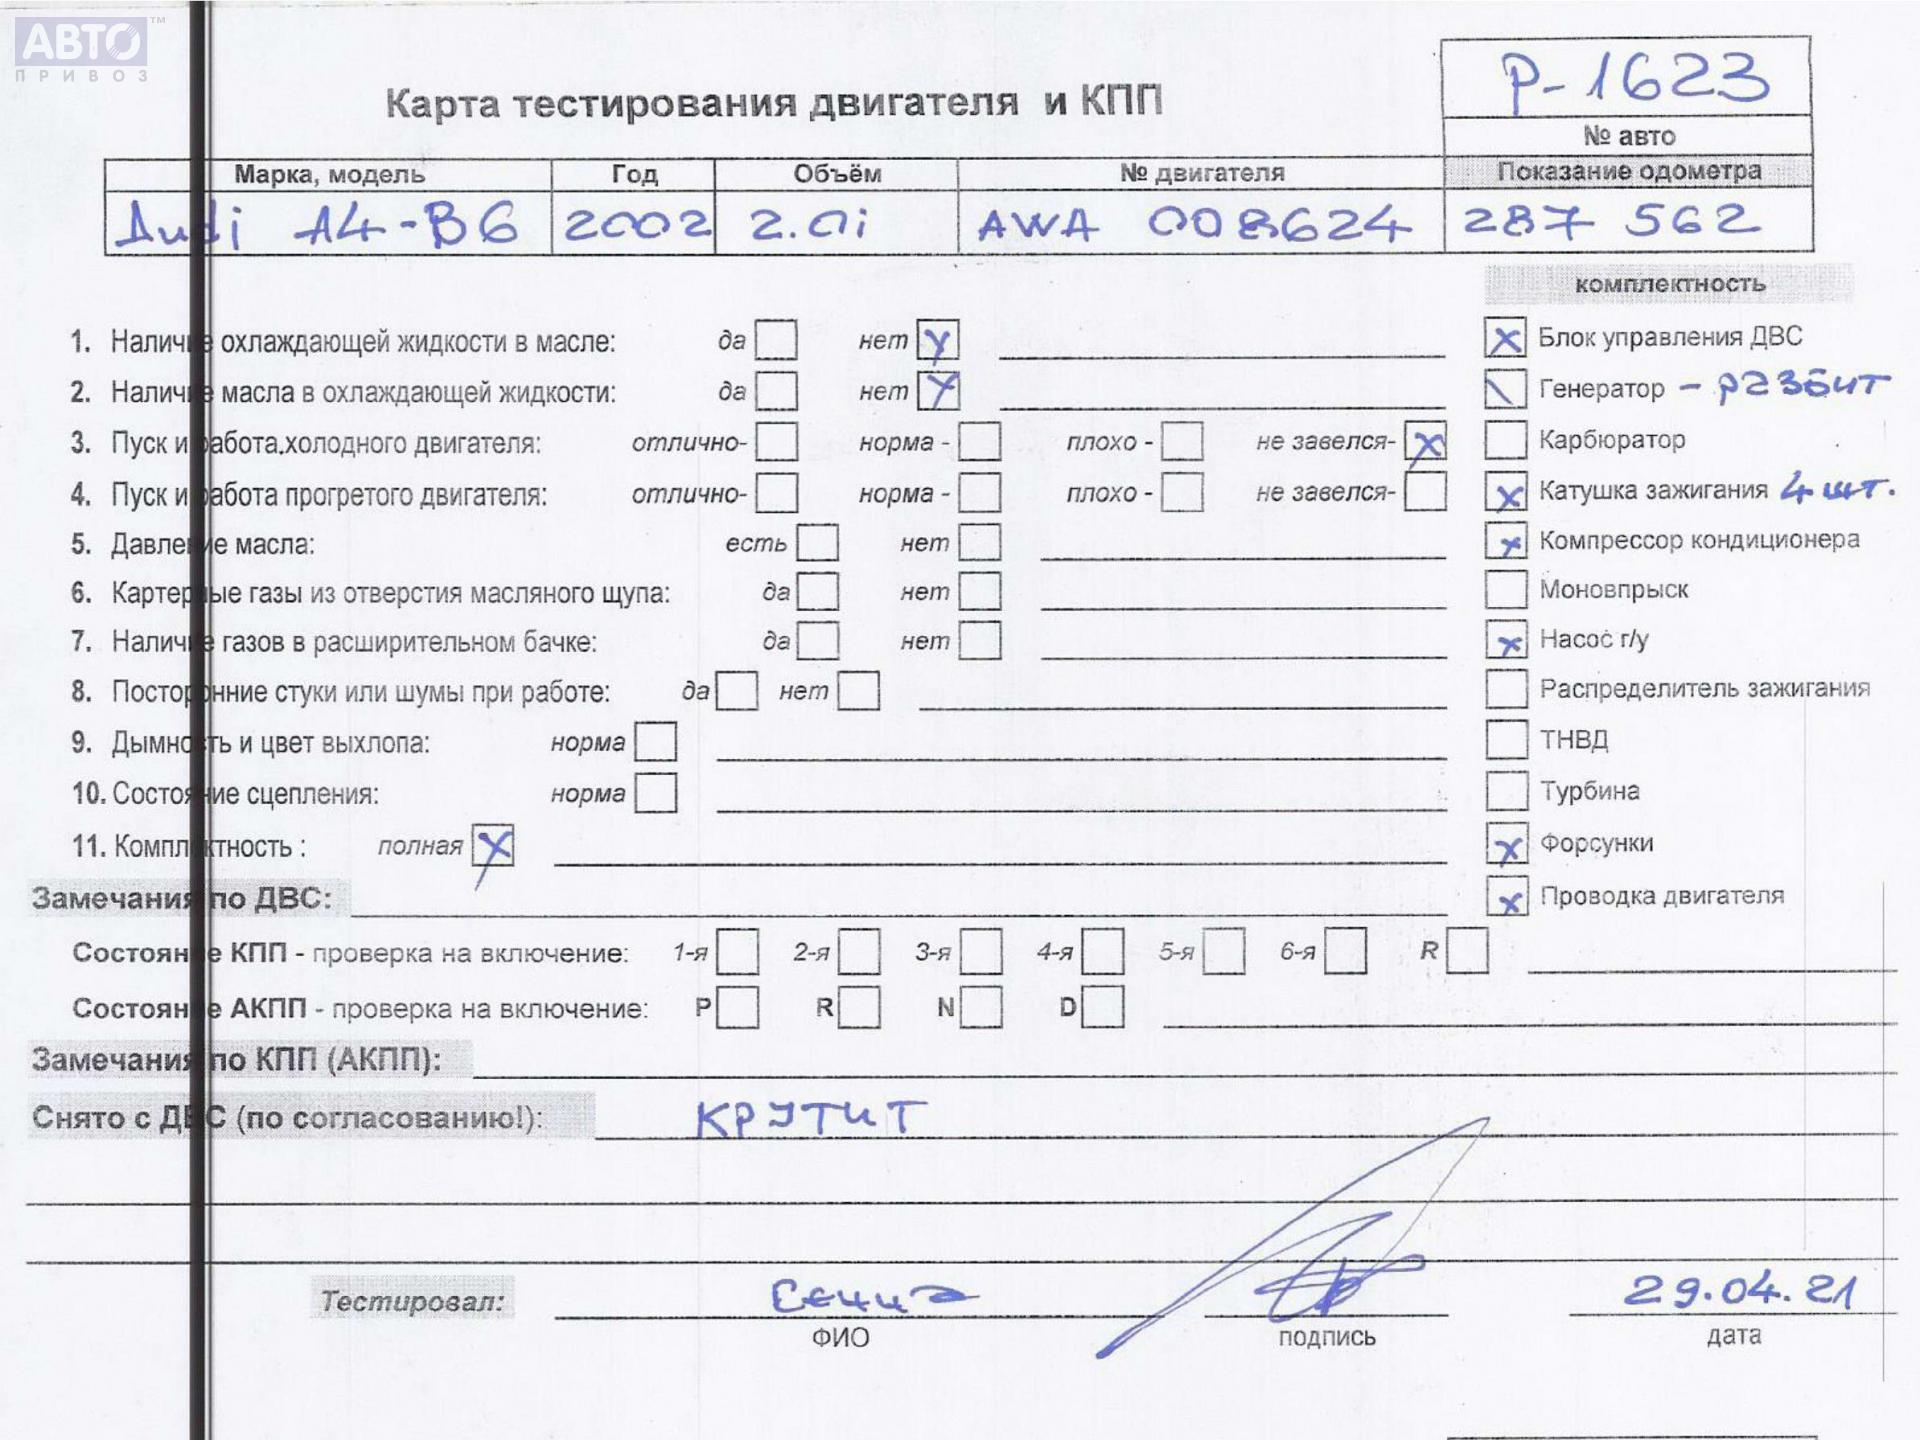 АВТО™
ПРИВОЗ
Р-1623
Карта тестирования двигателя и КПП
№ авто
Марка, модель Год Объём № двигателя Показание одометра
Audi A4-B6 2002 2.0i AWA 008624 287 562
комплектность
1. Наличие охлаждающей жидкости в масле: да нет x Блок управления ДВС x
2. Наличие масла в охлаждающей жидкости: да нет x Генератор - разбит
3. Пуск и работа.холодного двигателя: отлично- норма - плохо - не завелся- x Карбюратор
4. Пуск и работа прогретого двигателя: отлично- норма - плохо - не завелся- x Катушка зажигания 4 шт.
5. Давление масла: есть нет x Компрессор кондиционера
6. Картерные газы из отверстия масляного щупа: да нет Моновпрыск
7. Наличие газов в расширительном бачке: да нет x Насос г/у
8. Посторонние стуки или шумы при работе: да нет Распределитель зажигания
9. Дымность и цвет выхлопа: норма ТНВД
10. Состояние сцепления: норма Турбина
11. Комплектность : полная x x Форсунки
Замечания по ДВС: x Проводка двигателя
Состояние КПП - проверка на включение: 1-я 2-я 3-я 4-я 5-я 6-я R
Состояние АКПП - проверка на включение: P R N D
Замечания по КПП (АКПП):
Снято с ДВС (по согласованию!): КРУТИТ
Тестировал: 29.04.21
ФИО подпись дата